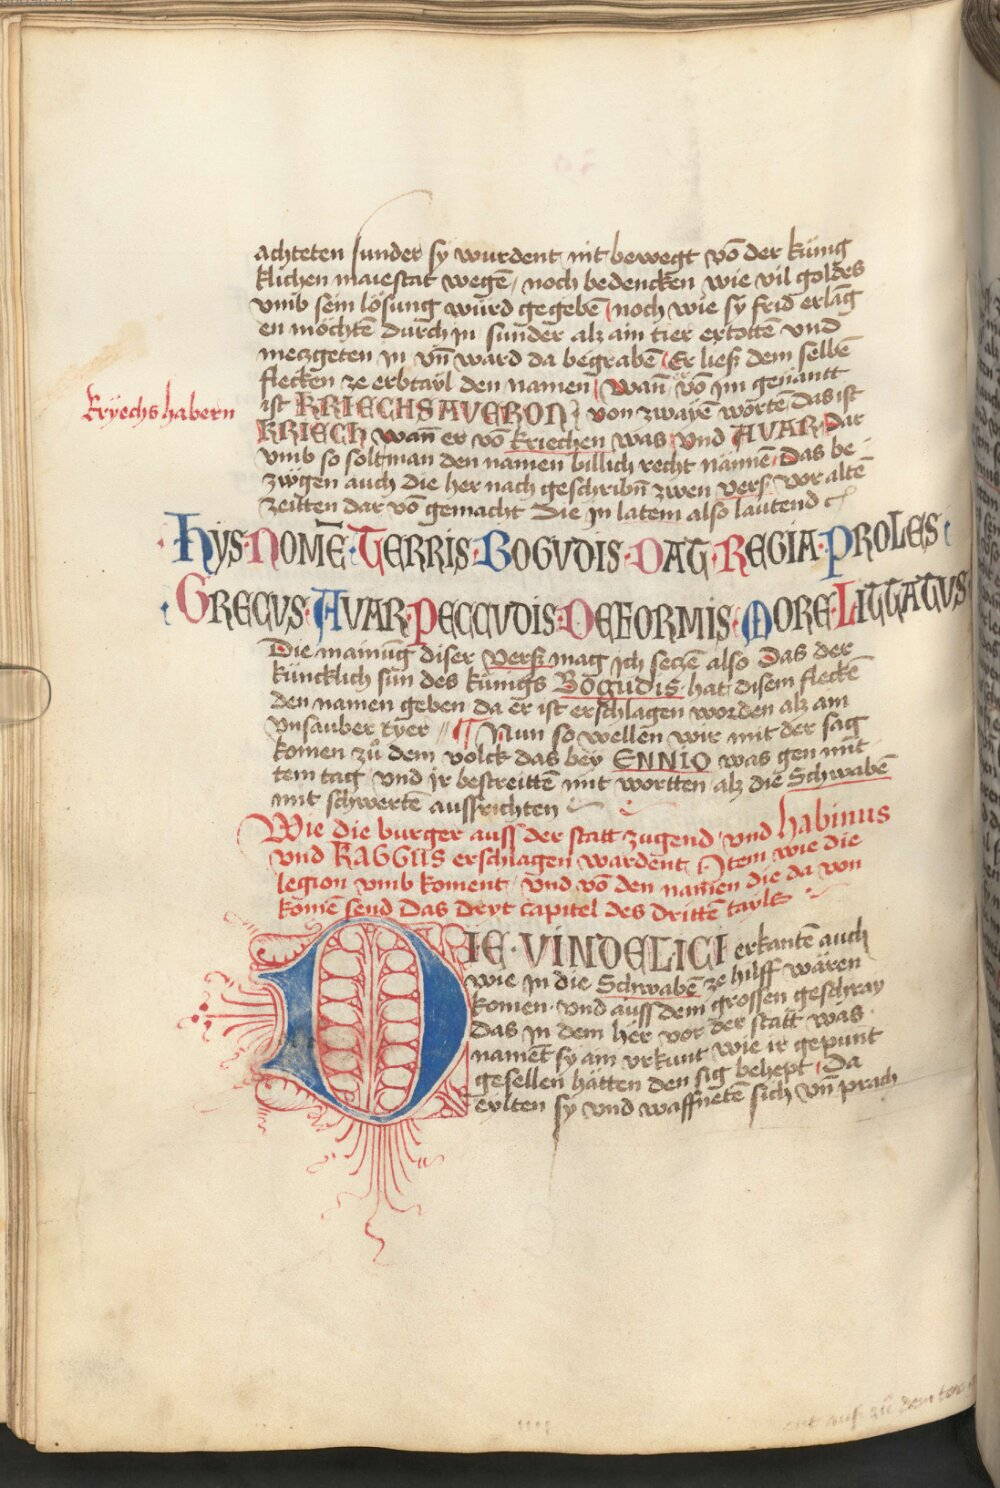 achteten sunder sy wurdent nit bewegt vō der küng
klichen maiestat wegē noch bedencken wie vil goldes
vmb sein lösung würd gegebē noch wie sy frid erlāg
en möchtē durch jn sunder alz ain tier extottē vnd
meczgeten jn vn̄ ward da begrabē Er liesz dem selbē
flecken ze erbtayl den namen wan̄ vō jm genantt
Kryechshabern
ist KRIECHSAVERON von zwayē wortē Das ist
KRIECH wan̄ er vō kriechen was vnd AVAR Dar
vmb so soltman den namen billich recht nännē Das be
zwgen auch die her nach geschribn̄ zwen vers vor altē
zeitten dar vō gemacht Die jn latem also lautend
HYS·NOMĒ·TERRIS·BOGVDIS·DAT·REGIA·PROLES
GRECVS·AVAR·PECCVDIS·DEFORMIS·MORE·LITTATVS
Die mainūg diser vers mag jch seczē also Das der
küncklich sun des künigs Bogudis hat disem fleckē
den namen geben da er ist erschlagen worden alz ain
vnsauber tyer ¶ Nun so wellen wir mit der sag
komen zů dem volck das bey ENNIO was gen mit
tem tag vnd jr bestreittē mit wortten alz die Schwabē
mit schwertē aussrichten
Wie die burger auss der statt zugend vnd habinus
vnd RAGGUS erschlagen wardent Jtem wie die
legion vmb koment vnd vō den namen die da von
komē send Das Dryt capitel des drittē tayls
DIE·VINDELICI erkantē auch
wie jn die Schwabē ze hilff wären
komen vnd auss dem grossen geschray
Das jn dem her vor der statt was
namēt sy ain vrkunt wie ir gepunt
gesellen hätten den sig behept Da
eylten sy vnd waffnetē sich vn̄ prach